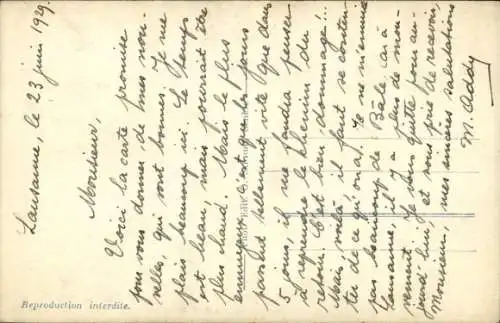 Lausanne, le 23 juin 1929.
Monsieur,
Voici la carte promise
pour vous donner de mes nou-
velles, qui sont bonnes. Je me
plais beaucoup ici. Le temps
est beau, mais pourrait être
plus chaud. Mais le plus
ennuyeux c'est que les jours
passent tellement vite que dans
5 jours, il me faudra penser
à reprendre le chemin du
retour. C'est bien dommage!..
Mais, voilà, il faut se conten-
ter de ce qu'on a!. Je ne m'ennuie
pas beaucoup de Bâle, car à
Lausanne, il y a plus de mou-
vement. Je vous quitte pour au-
jourd'hui, et vous prie de recevoir,
Monsieur, mes sincères salutations
M. Addy
Reproduction interdite.